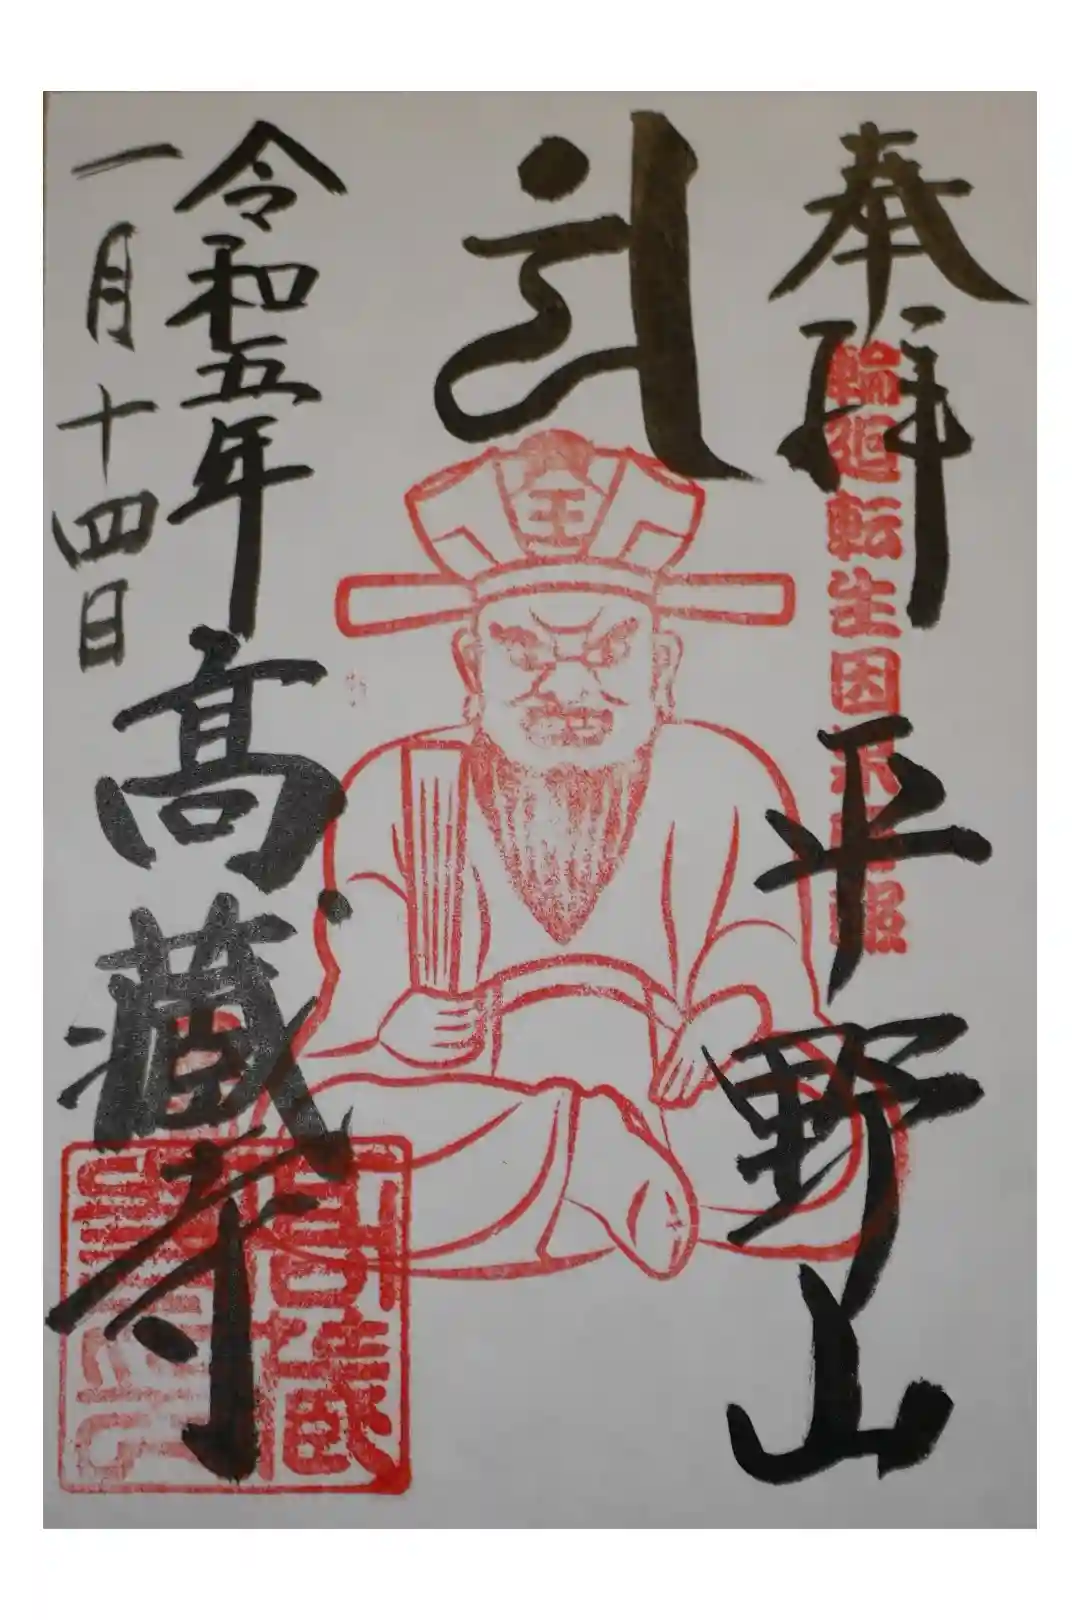 奉拝
輪廻転生因果応報
平野山
王
令和五年
一月十四日
髙藏寺